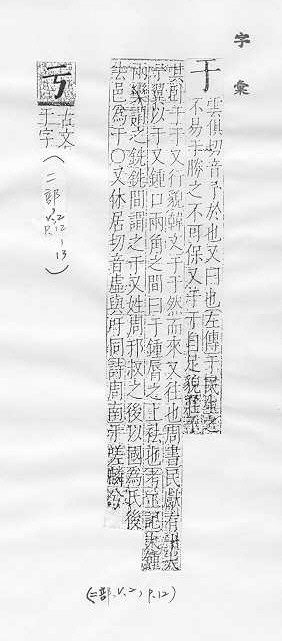 字彙
于
雲俱切音予於也又曰也左傳于民生之
不易于勝之不可保又于于自足貌莊子
其臥于于又行貌韓文于于然而來又往也周書民獻有十夫
予翼以于又鍾口兩角之間曰于鍾脣之上袪也考工記鳧氏鍾
兩欒謂之銑銑間謂之于又姓周邘叔之後以國為氏後
去邑為于○又休居切音虛與吁同詩周南于嗟麟兮
亏
古文
于字
(二部,V.2
P.12,
13)
(二部,V.2,P.12)